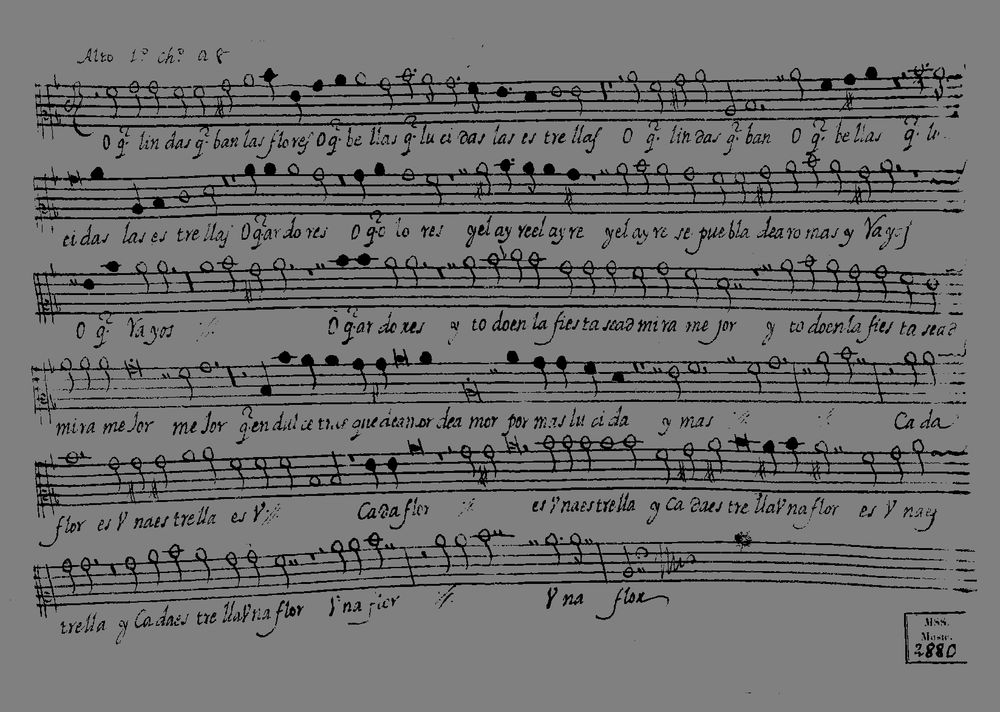 Alto 1º Chº a 8
O q̃ lin das q̃ ban las flores O q̃ be llas q̃ lu ci das las es tre llas O q̃ lin das q̃ ban O q̃ be llas q̃ lu
ci das las es tre llas O q̃ ar do res O q̃ o lo res y el ay re el ay re y el ay re se pue bla de aro mas y Ra yos
O q̃ Ra yos O q̃ ar do res y to do en la fies ta se ad mira me jor y to do en la fies ta se ad
mira me Jor me Jor q̃ en dul ce que de amor por mas lu ci da y mas Ca da
flor es V na es trella es V Ca da flor es V na es trella y Ca da es tre lla V na flor es V na es
trella y Ca da es tre lla V na flor V na flor V na flor
MSS.
Music.
2880